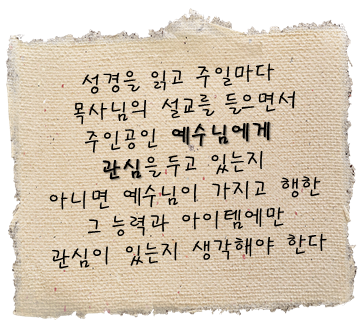 성경을 읽고 주일마다
목사님의 설교를 들으면서
주인공인 예수님에게
관심을 두고 있는지
아니면 예수님이 가지고 행한
그 능력과 아이템에만
관심이 있는지 생각해야 한다